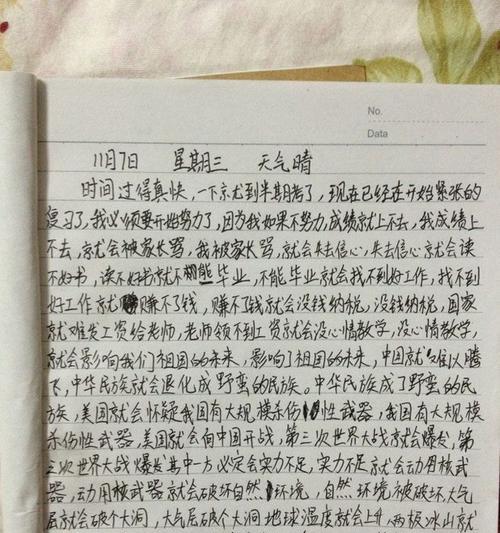 No.
Data
11月7日 星期三 天气晴
时间过得真快，一下就到半期考了，现在已经在开始紧张的
复习了，我必须要开始努力了，因为我如果不努力，成绩就上不去，我成绩上
不去，就会被家长骂，我被家长骂，就会失去信心，失去信心就会读
不好书，读不好书就不能毕业，不能毕业就会找不到好工作，找不到
好工作就赚不了钱，赚不了钱就会没钱纳税，没钱纳税，国家
就难发工资给老师，老师领不到工资就会没心情教学，没心情教学，
就会影响我们祖国的未来，影响了祖国的未来，中国就难以腾
飞，中华民族就会退化成野蛮的民族。中华民族成了野蛮的民
族，美国就会怀疑我国有大规模杀伤性武器，我国有大规模
杀伤性武器，美国就会向中国开战，第三次世界大战就会爆发，第
三次世界大战爆发其中一方必定会实力不足，实力不足就会动用核武
器，动用核武器就会破坏自然环境，自然环境被破坏，大气
层就会破个大洞，大气层破个大洞地球温度就会上升，两极冰山就